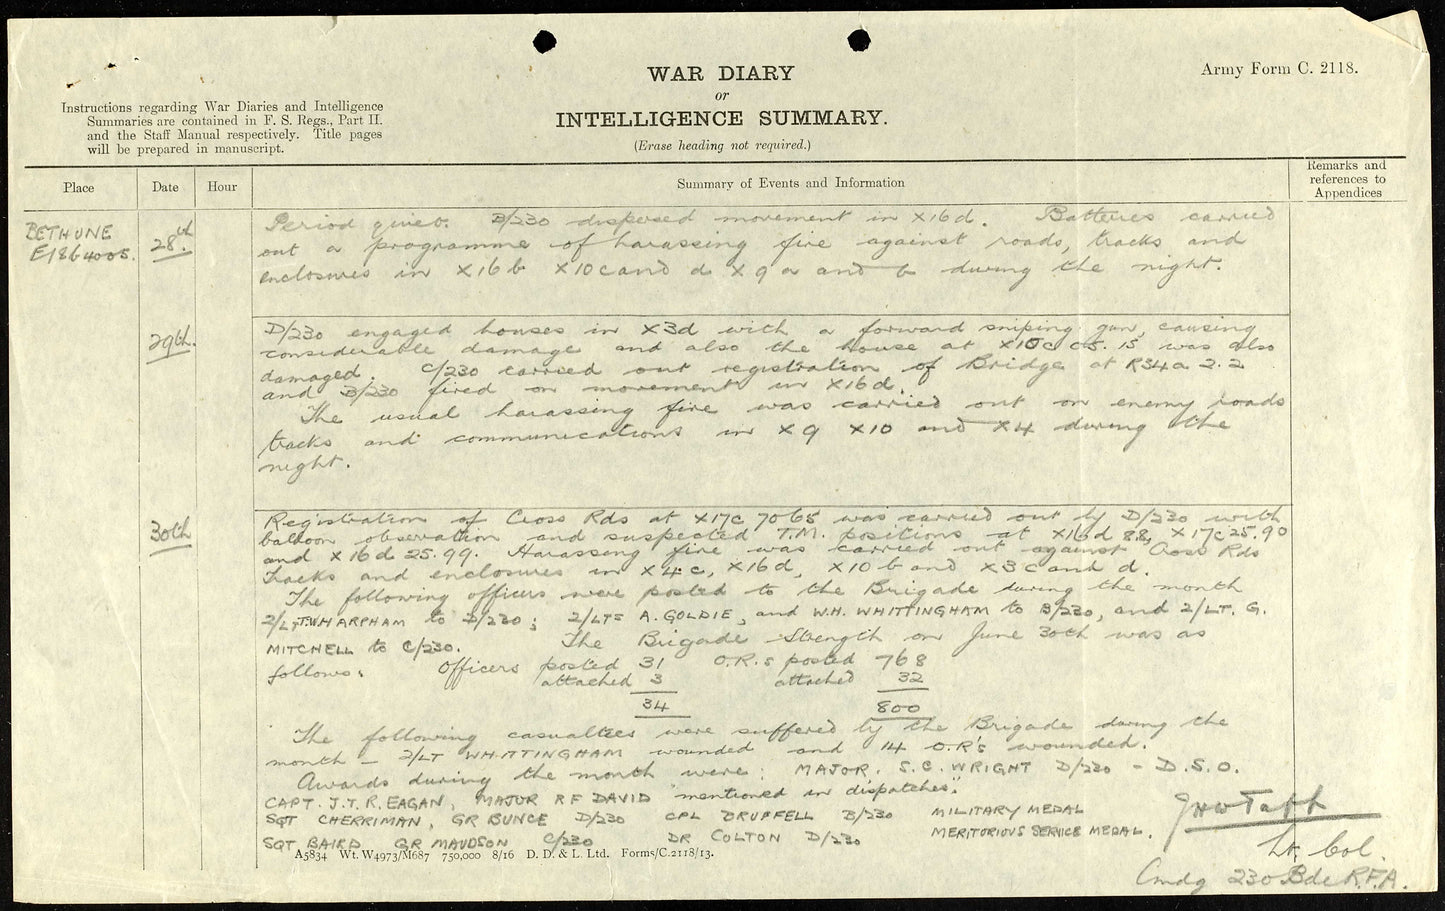 WAR DIARY
or
INTELLIGENCE SUMMARY.
(Erase heading not required.)
Army Form C. 2118.
Instructions regarding War Diaries and Intelligence
Summaries are contained in F. S. Regs., Part II.
and the Staff Manual respectively. Title pages
will be prepared in manuscript.
Place
Date
Hour
Summary of Events and Information
Remarks and
references to
Appendices
BETHUNE
E18b4005.
28th
Period quiet. B/230 dispersed movement in X16d. Batteries carried
out a programme of harassing fire against roads, tracks and
enclosures in X16b X10c and d X9a and b during the night.
29th.
D/230 engaged houses in X3d with a forward sniping gun, causing
considerable damage and also the house at X10c 05.15 was also
damaged. C/230 carried out registration of Bridge at R34a 2.2
and B/230 fired on movement in X16d.
The usual harassing fire was carried out on enemy roads
tracks and communications in X9 X10 and X4 during the
night.
30th
Registration of Cross Rds at X17c 7065 was carried out by D/230 with
balloon observation and suspected T.M. positions at X16d 88, X17c 25.90
and X16d 25.99. Harassing fire was carried out against Cross Rds
Tracks and enclosures in X4c, X16d, X10b and X3c and d.
The following officers were posted to the Brigade during the month
2/LT WHARPHAM to D/230; 2/LTs A. GOLDIE, and W.H. WHITTINGHAM to B/230, and 2/LT. G.
MITCHELL to C/230. The Brigade Strength on June 30th was as
follows: Officers posted 31 O.R.s posted 768
attached 3 attached 32
34 800
The following casualties were suffered by the Brigade during the
month — 2/LT WHITTINGHAM wounded and 14 O.R's wounded.
Awards during the month were: MAJOR. S.C. WRIGHT D/230 - D.S.O.
CAPT. J.T.R. EAGAN, MAJOR R F DAVID "mentioned in dispatches."
SGT CHERRIMAN, GR BUNCE D/230 CPL DRUFFELL B/230 MILITARY MEDAL
SGT BAIRD GR MAUDSON C/230 DR COLTON D/230 MERITORIOUS SERVICE MEDAL.
A5834 Wt. W4973/M687 750,000 8/16 D. D. & L. Ltd. Forms/C.2118/13.
Lt. Col.
Cmdg 230 Bde R.F.A.